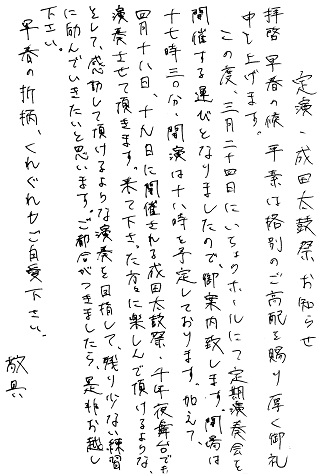 定演・成田太鼓祭お知らせ
拝啓 早春の候 平素は格別のご高配を賜り厚く御礼
申し上げます。
この度、三月二十四日にいちょうホールにて定期演奏会を
開催する運びとなりましたので、御案内致します。開場は
十七時三〇分、開演は十八時を予定しております。加えて、
四月十八日、十九日に開催される成田太鼓祭・千年夜舞台でも
演奏させて頂きます。来て下さった方々に楽しんで頂けるような、
そして、感動して頂けるような演奏を目指して、残り少ない練習
に励んでいきたいと思います。ご都合がつきましたら、是非お越し
下さい。
早春の折柄、くれぐれもご自愛下さい。
敬具